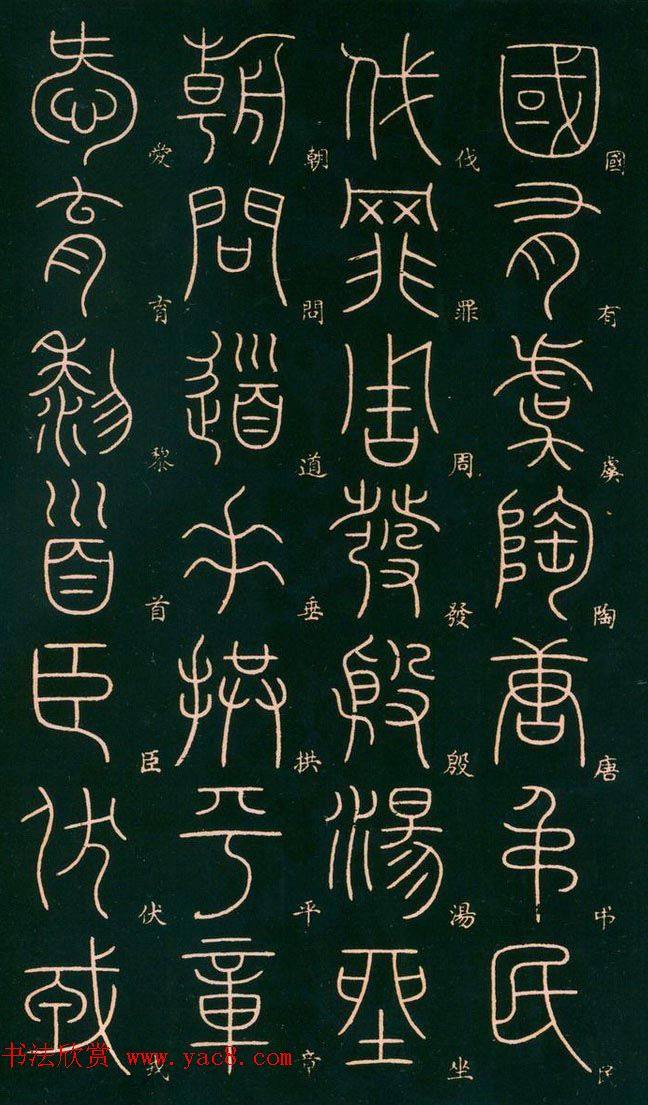 國有虞陶唐弔民
國有虞陶唐弔民
伐罪周發殷湯坐
伐罪周發殷湯坐
朝問道垂拱平章
朝問道垂拱平章
愛育黎首臣伏戎
愛育黎首臣伏戎
书法欣赏 www.yac8.com